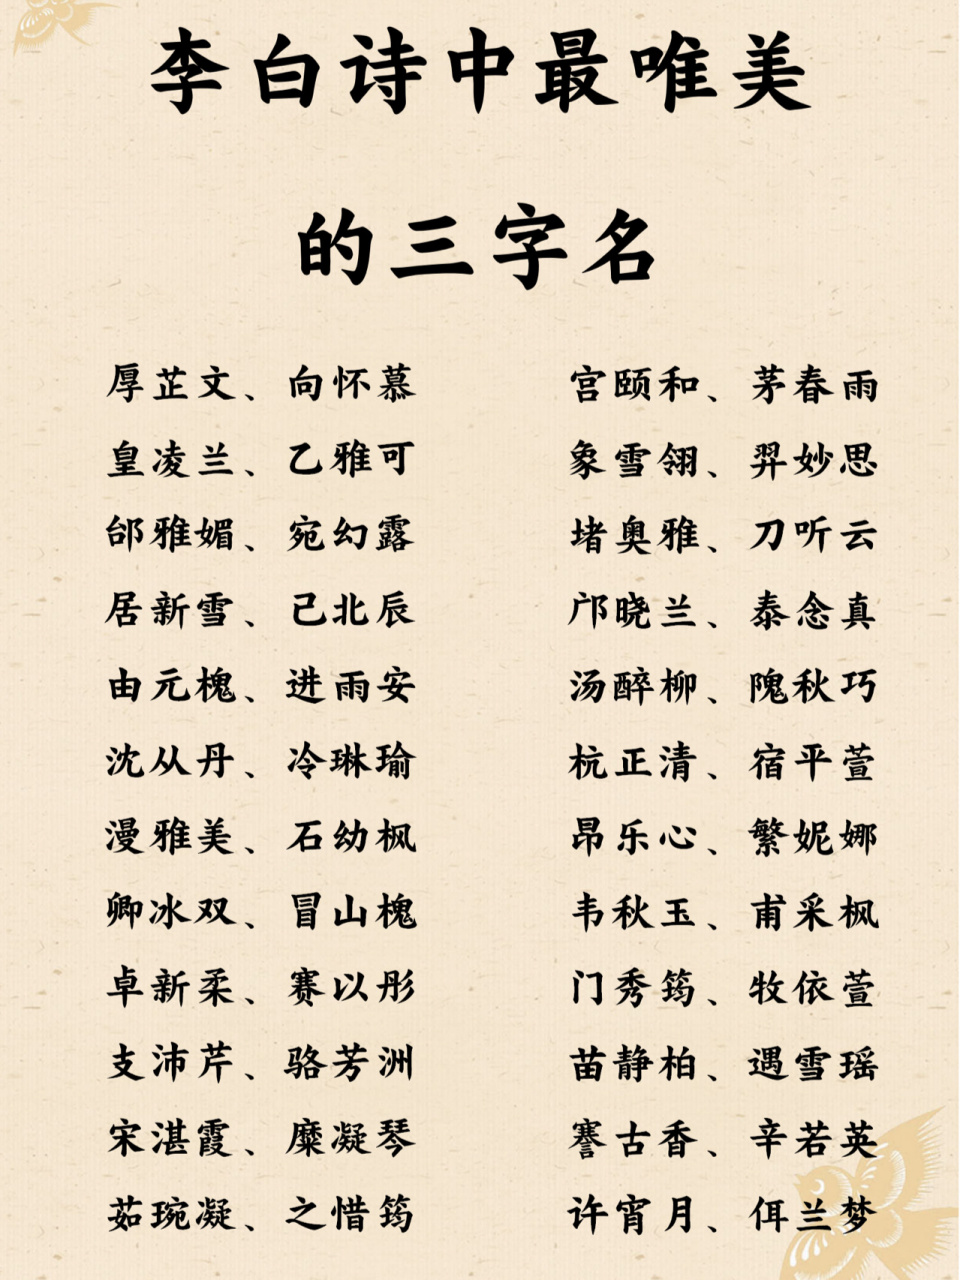 李白诗中最唯美
的三字名
厚芷文、向怀慕
皇凌兰、乙雅可
邰雅媚、宛幻露
居新雪、己北辰
由元槐、进雨安
沈从丹、冷琳瑜
漫雅美、石幼枫
卿冰双、冒山槐
卓新柔、赛以彤
支沛芹、骆芳洲
宋湛霞、糜凝琴
茹琬凝、之惜筠
宫颐和、茅春雨
象雪翎、羿妙思
堵奥雅、刀听云
邝晓兰、泰念真
汤醉柳、隗秋巧
杭正清、宿平萱
昂乐心、繁妮娜
韦秋玉、甫采枫
门秀筠、牧依萱
苗静柏、遇雪瑶
謇古香、辛若英
许宵月、佴兰梦